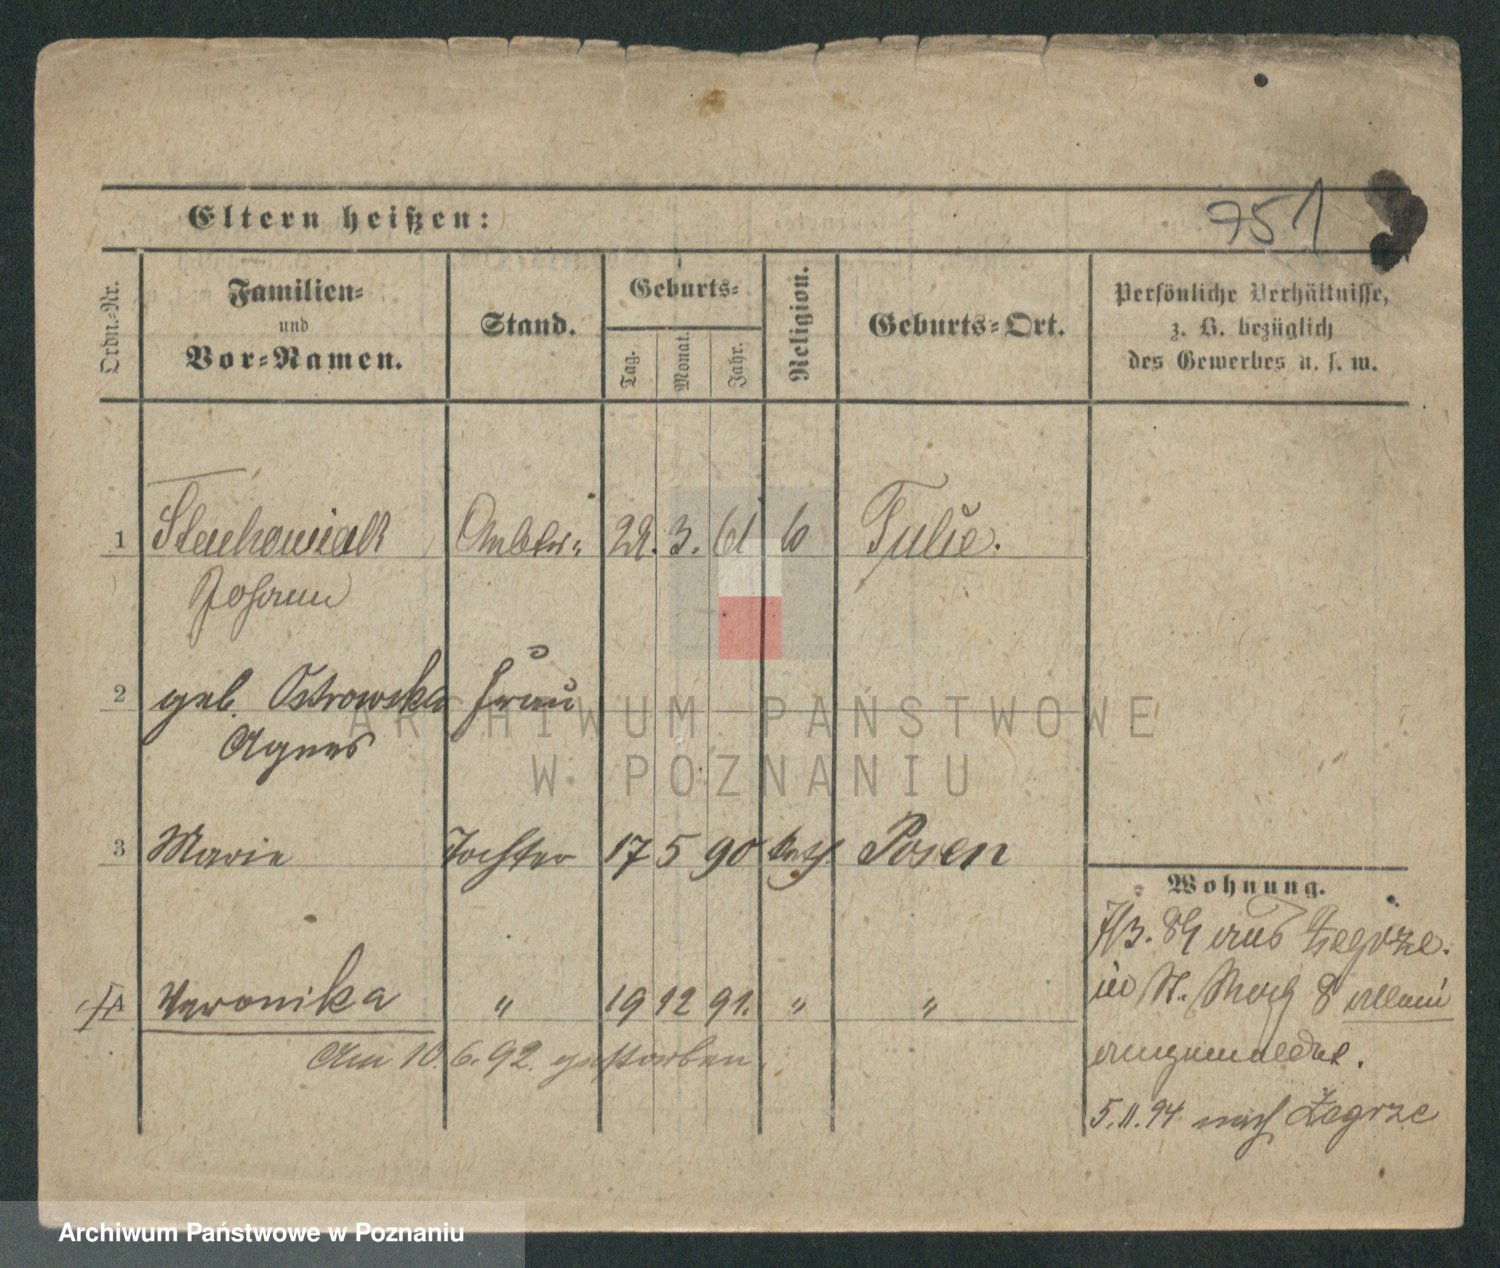 751
Eltern heißen:
Ordn.-Nr.
Familien-
und
Vor-Namen.
Stand.
Geburts-
Tag.
Monat.
Jahr.
Religion.
Geburts-Ort.
Persönliche Verhältnisse,
z. B. bezüglich
des Gewerbes u. s. w.
1 Stachowiak Arbtr. 22. 3. 61 Tulie.
Johann
2 geb. Ostrowska Frau
Agnes
3 Marie Tochter 17 5 90 kath. Posen
4 Veronika " 19 12 91. " "
Am 10. 6. 92. gestorben.
Wohnung.
aus Zegrze.
in St. 8 allein
angemeldet.
5.11.94 nach Zegrze
ARCHIWUM PAŃSTWOWE
W POZNANIU
Archiwum Państwowe w Poznaniu